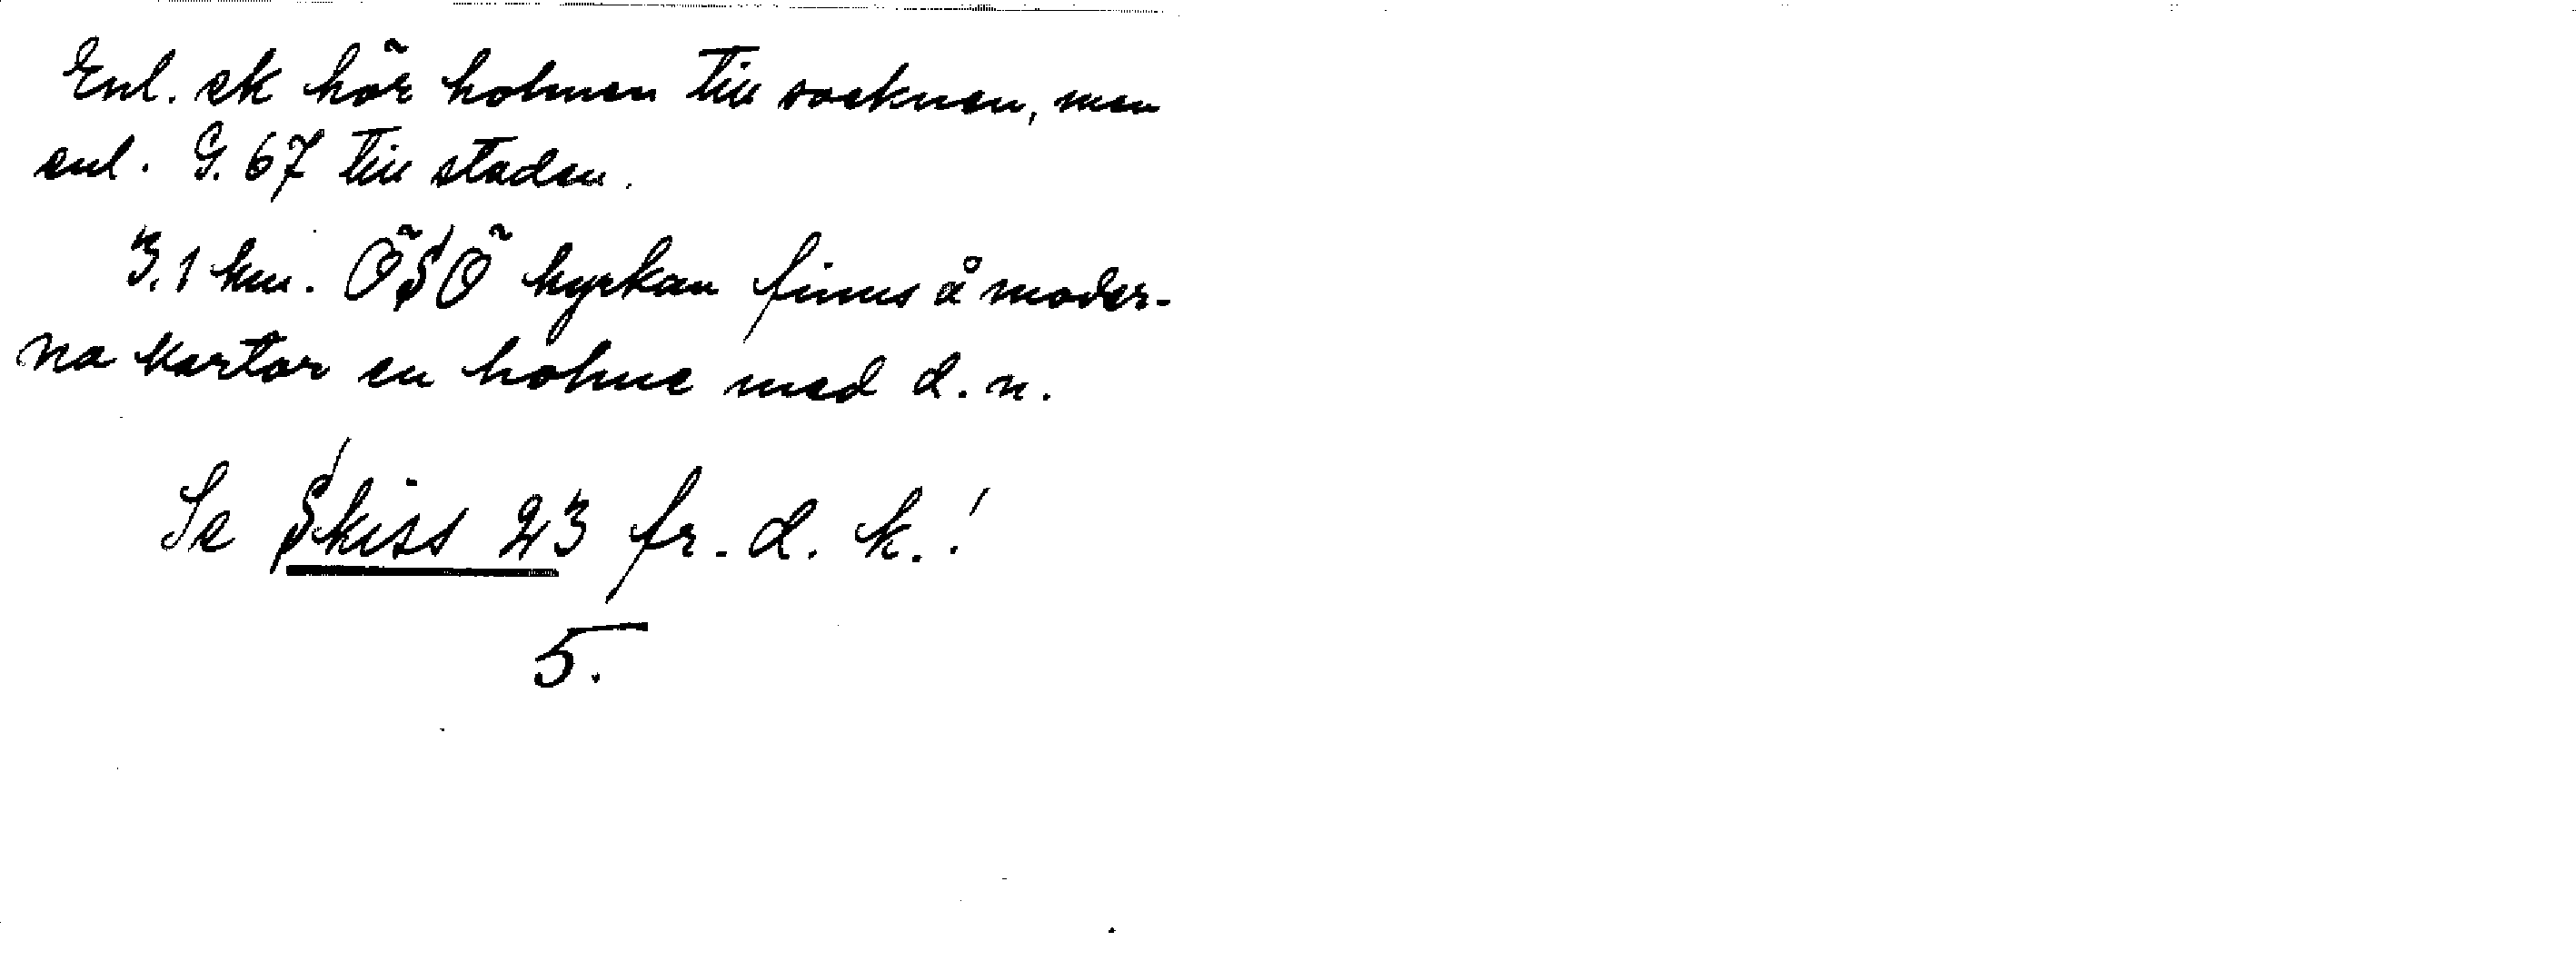 Enl. ek hör holmen till socknen, men
enl. G. 67 till staden.
3.1 km. ÖSÖ kyrkan finns å moder-
na kartor en holme med d. n.
Se Skiss 23 fr. d. k.!
5.